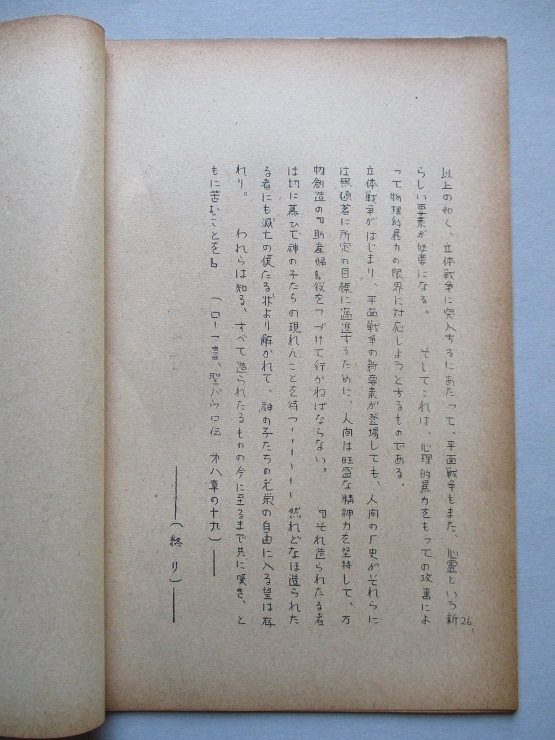 26.
以上の如く、立体戦争に突入するにあたって、平面戦争もまた、心霊という新
らしい要素が必要になる。 そしてこれは、心理的暴力をもっての攻害によ
って物理的暴力の限界に対応しようとするものである。
立体戦争がはじまり、平面戦争の新要素が登場しても、人向の歴史がそれらに
は無頓著に所定の目標に邁進するために、人向は旺盛な精神力を堅持して、万
物創造の『助産婦』役をつづけて行かねばならない。 『それ造られたる者
は切に慕ひて神の子たちの現れんことを待つ------ 然れどなほ造られた
る者にも滅亡の僕たる状より解かれて、神の子たちの光栄の自由に入る望は存
れり。 われらは知る、すべて造られたるものの今に至るまで共に嘆き、と
もに苦むことを』 (ローマ書、聖パウロ伝、第八章の十九)——
——(終り)——